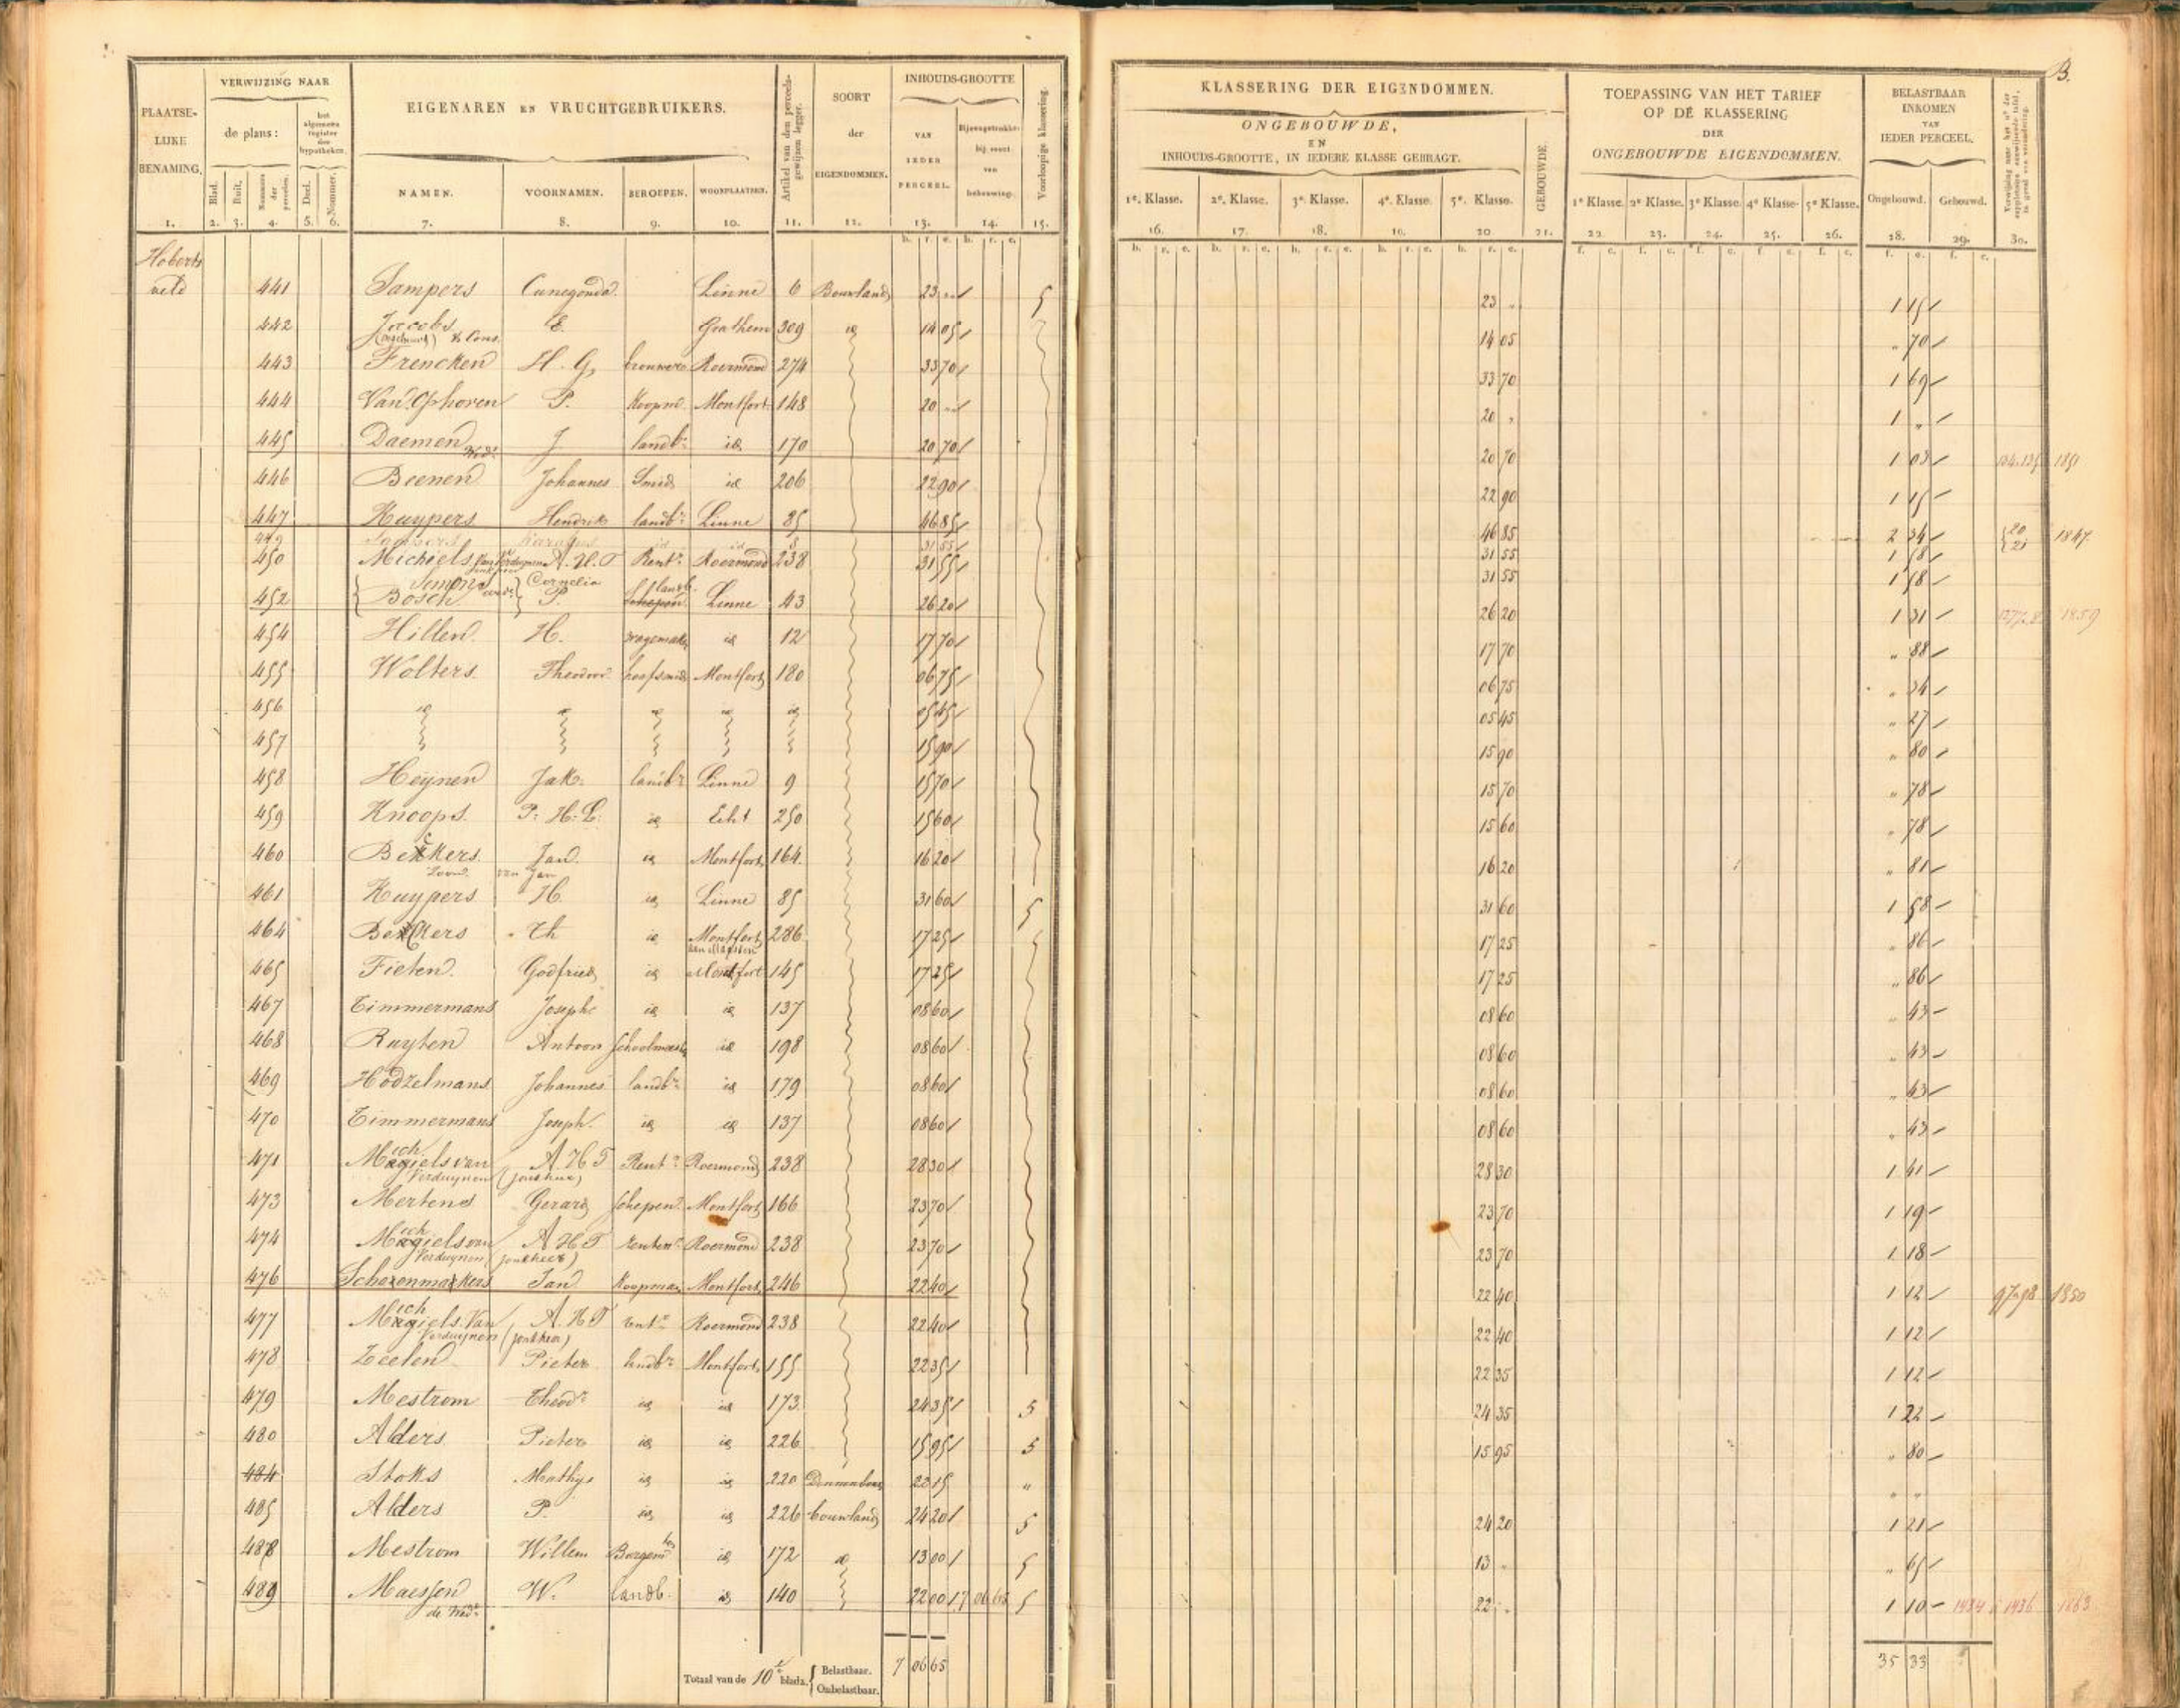 B.
PLAATSELIJKE BENAMING.
VERWIJZING NAAR
de plans:
het algemeen register der hypotheken.
Blad. Ruit. Nummers der perceelen. Deel. Nummer.
EIGENAREN EN VRUCHTGEBRUIKERS.
NAMEN. VOORNAMEN. BEROEPEN. WOONPLAATSEN.
SOORT der EIGENDOMMEN.
INHOUDS-GROOTTE
VAN IEDER PERCEEL.
Voorloopige klassering.
KLASSERING DER EIGENDOMMEN.
ONGEBOUWDE,
EN
INHOUDS-GROOTTE, IN IEDERE KLASSE GEBRAGT.
GEBOUWDE.
1e. Klasse. 2e. Klasse. 3e. Klasse. 4e. Klasse. 5e. Klasse.
TOEPASSING VAN HET TARIEF
OP DE KLASSERING
DER
ONGEBOUWDE EIGENDOMMEN.
1e Klasse. 2e Klasse. 3e Klasse. 4e Klasse. 5e Klasse.
BELASTBAAR
INKOMEN
VAN
IEDER PERCEEL.
Ongebouwd. Gebouwd.
1. 2. 3. 4. 5. 6. 7. 8. 9. 10. 11. 12. 13. 14. 15. 16. 17. 18. 19. 20. 21. 22. 23. 24. 25. 26. 28. 29. 30.
Hoberts
veld 441 Sampers Cunegonda Linne 6 Bouwland 23 " 5 23 " 1 15
442 Jacobs & Cons. E. Grathem 309 id 14 05 14 05 " 70
443 Frencken H. G. brouwer Roermond 274 33 70 33 70 1 69
444 Van Ophoven P. Koopm. Montfort 148 20 " 20 " 1 "
445 Daemen Wed. J. landbr. id 170 20 70 20 70 1 03 1851
446 Beenen Johannes Smid id 206 22 90 22 90 1 15
447 Kuypers Hendrik landbr. Linne 85 46 85 46 85 2 34 20 21 1847
449 31 55 31 55 1 58
450 Michiels van Verduynen A. H. T Rentr. Roermond 238 31 55 31 55 1 58
Simons Cornelia landb.
452 Bosch P. Schepen Linne 43 26 20 26 20 1 31 1859
454 Hillen H. wagemaker id 12 17 70 17 70 " 88
455 Wolters Theodoor hoefsmid Montfort 180 06 75 06 75 " 34
456 id id id id id 05 45 05 45 " 27
457 15 90 15 90 " 80
458 Heynen Jak. landbr. Linne 9 15 70 15 70 " 78
459 Knoops P. H. L. id Echt 250 15 60 15 60 " 78
460 Beckers Zoon van Jan Jan id Montfort 164 16 20 16 20 " 81
461 Kuypers H. id Linne 85 31 60 5 31 60 1 58
464 Beckers Th id Montfort 286 17 25 17 25 " 86
465 Fieten Godfried id Montfort 145 17 25 17 25 " 86
467 Timmermans Joseph id id 137 08 60 08 60 " 43
468 Ruyten Antoon Schoolmeester id 198 08 60 08 60 " 43
469 Hodzelmans Johannes landbr. id 179 08 60 08 60 " 43
470 Timmermans Joseph id id 137 08 60 08 60 " 43
471 Michiels van Verduynen (jonkheer) A H T Rentr. Roermond 238 28 30 28 30 1 41
473 Mertens Gerard schepen Montfort 166 23 70 23 70 1 19
474 Michiels van Verduynen (jonkheer) A H T rentenr. Roermond 238 23 70 23 70 1 18
476 Schoenmakers Jan Koopman Montfort 246 22 40 22 40 1 12 97.98 1850
477 Michiels Van Verduynen (jonkheer) A. H T rentr. Roermond 238 22 40 22 40 1 12
478 Zeelen Pieter landbr. Montfort 155 22 35 22 35 1 12
479 Mestrom Theodr. id id 173 24 35 5 24 35 1 22
480 Alders Pieter id id 226 15 95 5 15 95 " 80
484 Stoks Mathys id id 220 Dennenbosch 22 15 " " "
485 Alders P. id id 226 bouwland 24 20 5 24 20 1 21
488 Mestrom Willem Burgemr. id 172 id 13 00 5 13 " " 65
489 Maessen de Wede. W. landb. id 140 22 00 5 22 " 1 10 1934 1936 1863
Totaal van de 10e bladz. { Belastbaar. 7 06 65 35 33
Onbelastbaar.